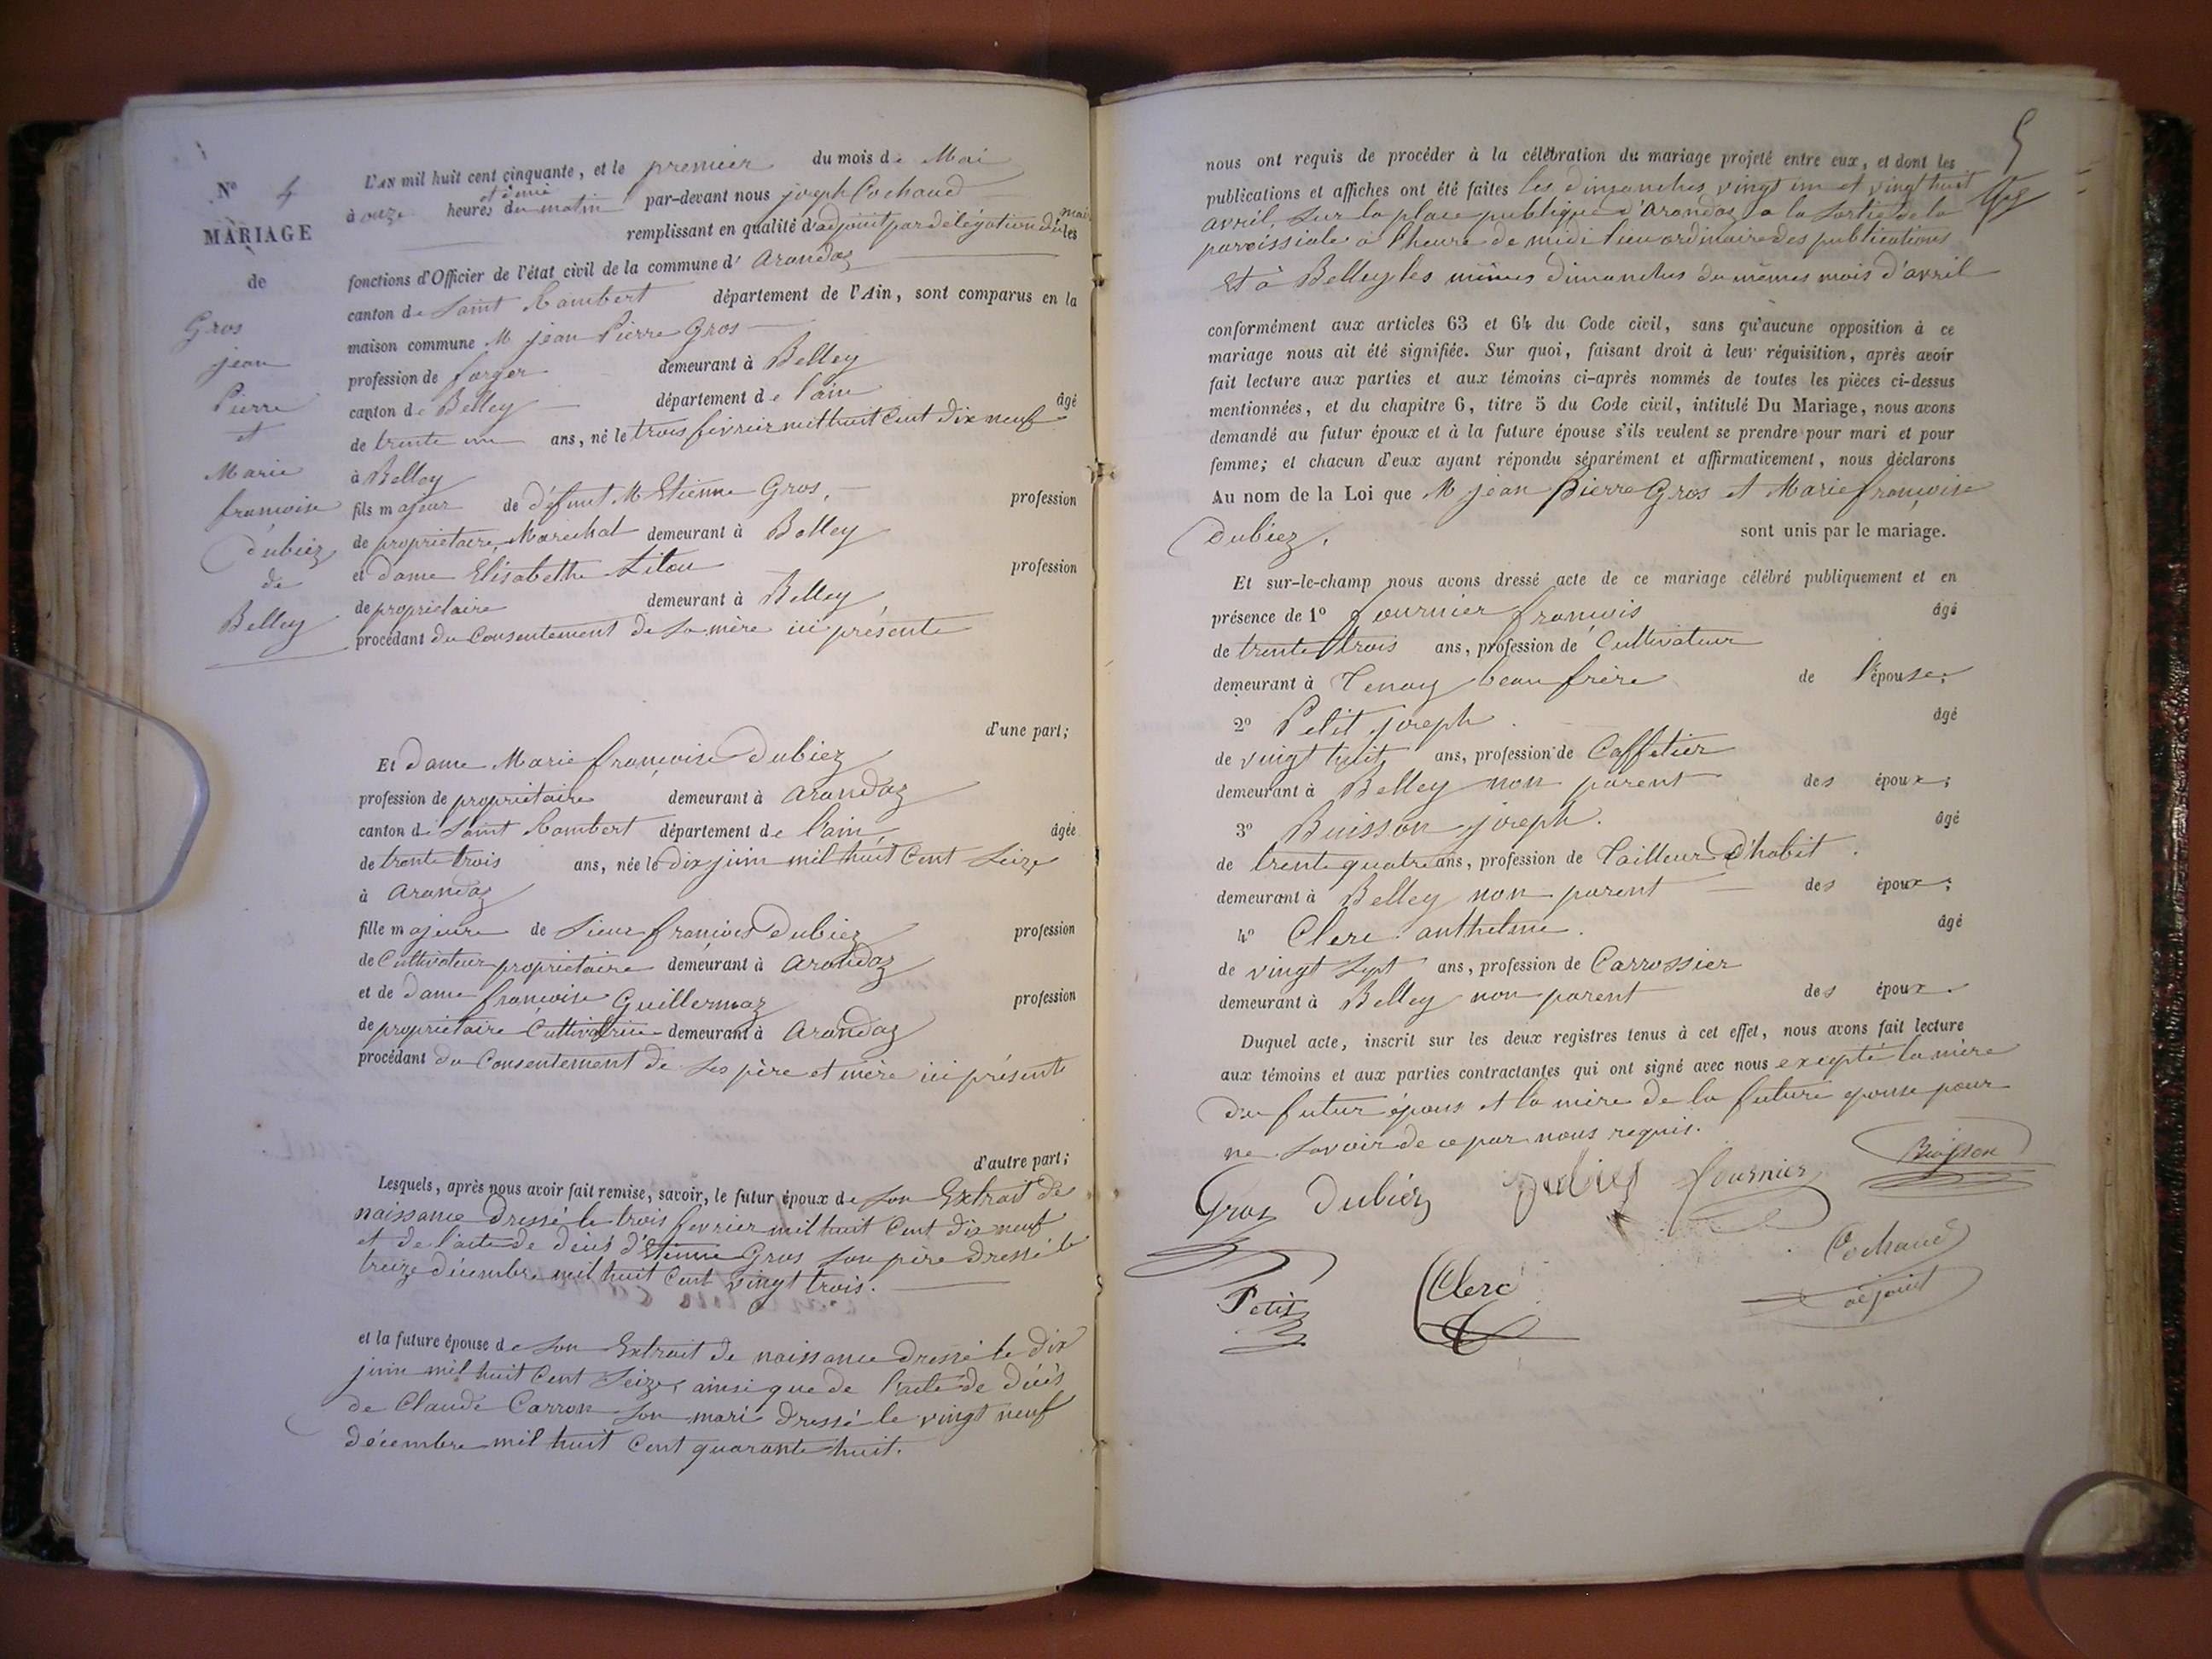 N° 4
MARIAGE
de
Gros
jean
Pierre
et
Marie
françoise
Dubiez
de
Belley
L'AN mil huit cent cinquante, et le premier du mois de Mai
et demie
à onze heures du matin par-devant nous joseph Cochaud
remplissant en qualité d'adjoint par délégation du maire les
fonctions d'Officier de l'état civil de la commune d' Arandaz
canton de Saint Rambert département de l'Ain, sont comparus en la
maison commune M jean Pierre Gros
profession de forger demeurant à Belley
canton de Belley département de l'ain âgé
de trente un ans, né le trois fevrier mil huit Cent dix neuf
à Belley
fils majeur de défunt M Etienne Gros, profession
de proprietaire, Marechal demeurant à Belley
et dame Elisabethe Litou profession
de proprietaire demeurant à Belley
procédant du Consentement de Sa mère ici présente
d'une part;
Et dame Marie françoise Dubiez
profession de proprietaire demeurant à Arandaz
canton de Saint Rambert département de l'ain, âgée
de trente trois ans, née le dix juin mil huit Cent Seize
à Arandaz
fille majeure de Sieur françois Dubiez profession
de Cultivateur proprietaire demeurant à Arandaz
et de dame françoise Guillermaz profession
de proprietaire Cultivatrice demeurant à Arandaz
procédant du Consentement de Ses père et mère ici présente
d'autre part;
Lesquels, après nous avoir fait remise, savoir, le futur époux de Son Extrait de
naissance Dressé le trois fevrier mil huit Cent dix neuf
et de l'acte de décès d'Etienne Gros Son père dressé le
treize décembre mil huit Cent vingt trois.
et la future épouse de Son Extrait de naissance dressé le dix
juin mil huit Cent Seize, ainsi que de l'acte de décès
de Claude Carron Son mari dressé le vingt neuf
décembre mil huit Cent quarante huit.
5
nous ont requis de procéder à la célébration du mariage projeté entre eux, et dont les
publications et affiches ont été faites les dimanches vingt un et vingt huit
avril, Sur la place publique d'Arandaz a la Sortie de la
paroissiale à l'heure de midi lieu ordinaire des publications
et à Belley les mêmes dimanches du mêmes mois d'avril
conformément aux articles 63 et 64 du Code civil, sans qu'aucune opposition à ce
mariage nous ait été signifiée. Sur quoi, faisant droit à leur réquisition, après avoir
fait lecture aux parties et aux témoins ci-après nommés de toutes les pièces ci-dessus
mentionnées, et du chapitre 6, titre 5 du Code civil, intitulé Du Mariage, nous avons
demandé au futur époux et à la future épouse s'ils veulent se prendre pour mari et pour
femme; et chacun d'eux ayant répondu séparément et affirmativement, nous déclarons
Au nom de la Loi que M jean Pierre Gros et Marie françoise
Dubiez, sont unis par le mariage.
Et sur-le-champ nous avons dressé acte de ce mariage célébré publiquement et en
présence de 1° fournier françois âgé
de trente trois ans, profession de Cultivateur
demeurant à Tenay beau frère de l'épouse;
2° Petit joseph. âgé
de vingt huit ans, profession de Caffetier
demeurant à Belley non parent des époux;
3° Buisson joseph. âgé
de trente quatre ans, profession de Tailleur d'habit.
demeurant à Belley non parent des époux;
4° Clerc anthelme. âgé
de vingt Sept ans, profession de Carrossier
demeurant à Belley non parent des époux.
Duquel acte, inscrit sur les deux registres tenus à cet effet, nous avons fait lecture
aux témoins et aux parties contractantes qui ont signé avec nous excepté la mère
du futur époux et la mère de la future epouse pour
ne Savoir de ce par nous requis.
Gros Dubiéz Dubiez fournier Buisson
Petit Clerc Cochaud
adjoint